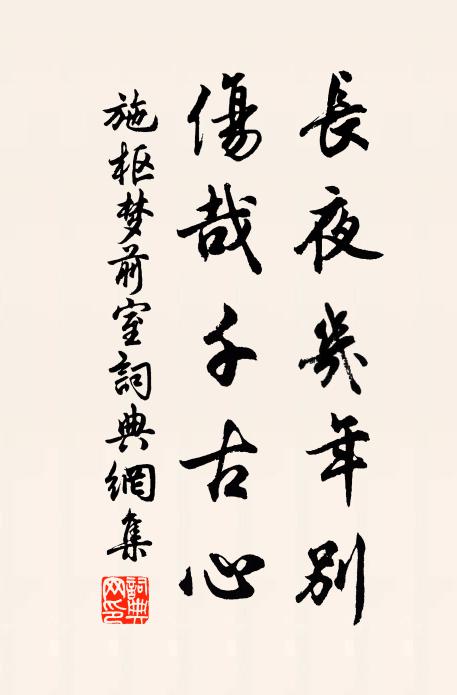 長夜幾年別
傷哉千古心
施枢梦前室詞典網集
詞典网印